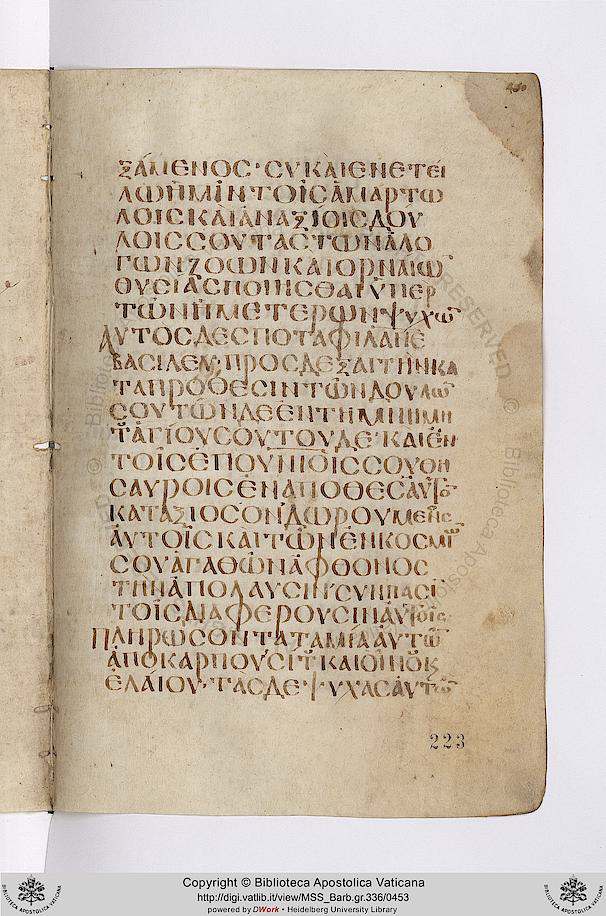 ΞΑΜΕΝΟΣ· ΣΥ ΚΑΙ ΕΝΕΤΕΙ
ΛΩ ΗΜΙΝ ΤΟΙΣ ΑΜΑΡΤΩ
ΛΟΙΣ ΚΑΙ ΑΝΑΞΙΟΙΣ ΔΟΥ
ΛΟΙΣ ΣΟΥ ΤΑΣ ΤΩΝ ΑΛΟ
ΓΩΝ ΖΟΩΝ ΚΑΙ ΟΡΝΑΙΩ
ΘΥΣΙΑΣ ΠΟΙΗΣΘΑΙ ΥΠΕΡ
ΤΩΝ ΗΜΕΤΕΡΩΝ ΨΥΧΩ
ΑΥΤΟΣ ΔΕΣΠΟΤΑ ΦΙΛΑΝΕ
ΒΑΣΙΛΕΥ· ΠΡΟΣΔΕΞΑΙ ΤΗΝ ΚΑ
ΤΑ ΠΡΟΘΕΣΙΝ ΤΩΝ ΔΟΥΛΩ
ΣΟΥ ΤΩΝΔΕ ΕΝ ΤΗ ΜΝΙΜΗ
ΑΓΙΟΥ ΣΟΥ ΤΟΥΔΕ· ΚΑΙ ΕΝ
ΤΟΙΣ ΕΠΟΥΝΙΟΙΣ ΣΟΥ ΘΗ
ΣΑΥΡΟΙΣ ΕΝΑΠΟΘΕΣ
ΚΑΤΑΞΙΟΣΟΝ ΔΩΡΟΥΜΕΝΟΣ
ΑΥΤΟΙΣ ΚΑΙ ΤΩΝ ΕΝΚΟΣΜΙ
ΣΟΥ ΑΓΑΘΩΝ ΑΦΘΟΝΟΣ
ΤΗΝ ΑΠΟΛΑΥΣΙΝ· ΣΥΝ ΠΑΣΙ
ΤΟΙΣ ΔΙΑΦΕΡΟΥΣΙΝ ΑΥΤΟΙΣ·
ΠΛΗΡΩΣΟΝ ΤΑ ΤΑΜΙΑ ΑΥΤΩ
ΑΠΟ ΚΑΡΠΟΥ ΣΙΤ ΚΑΙ ΟΙΝΟΥ Κ
ΕΛΑΙΟΥ· ΤΑΣ ΔΕ ΨΥΧΑΣ ΑΥΤΩ
223
Copyright © Biblioteca Apostolica Vaticana
http://digi.vatlib.it/view/MSS_Barb.gr.336/0453
powered by DWork • Heidelberg University Library